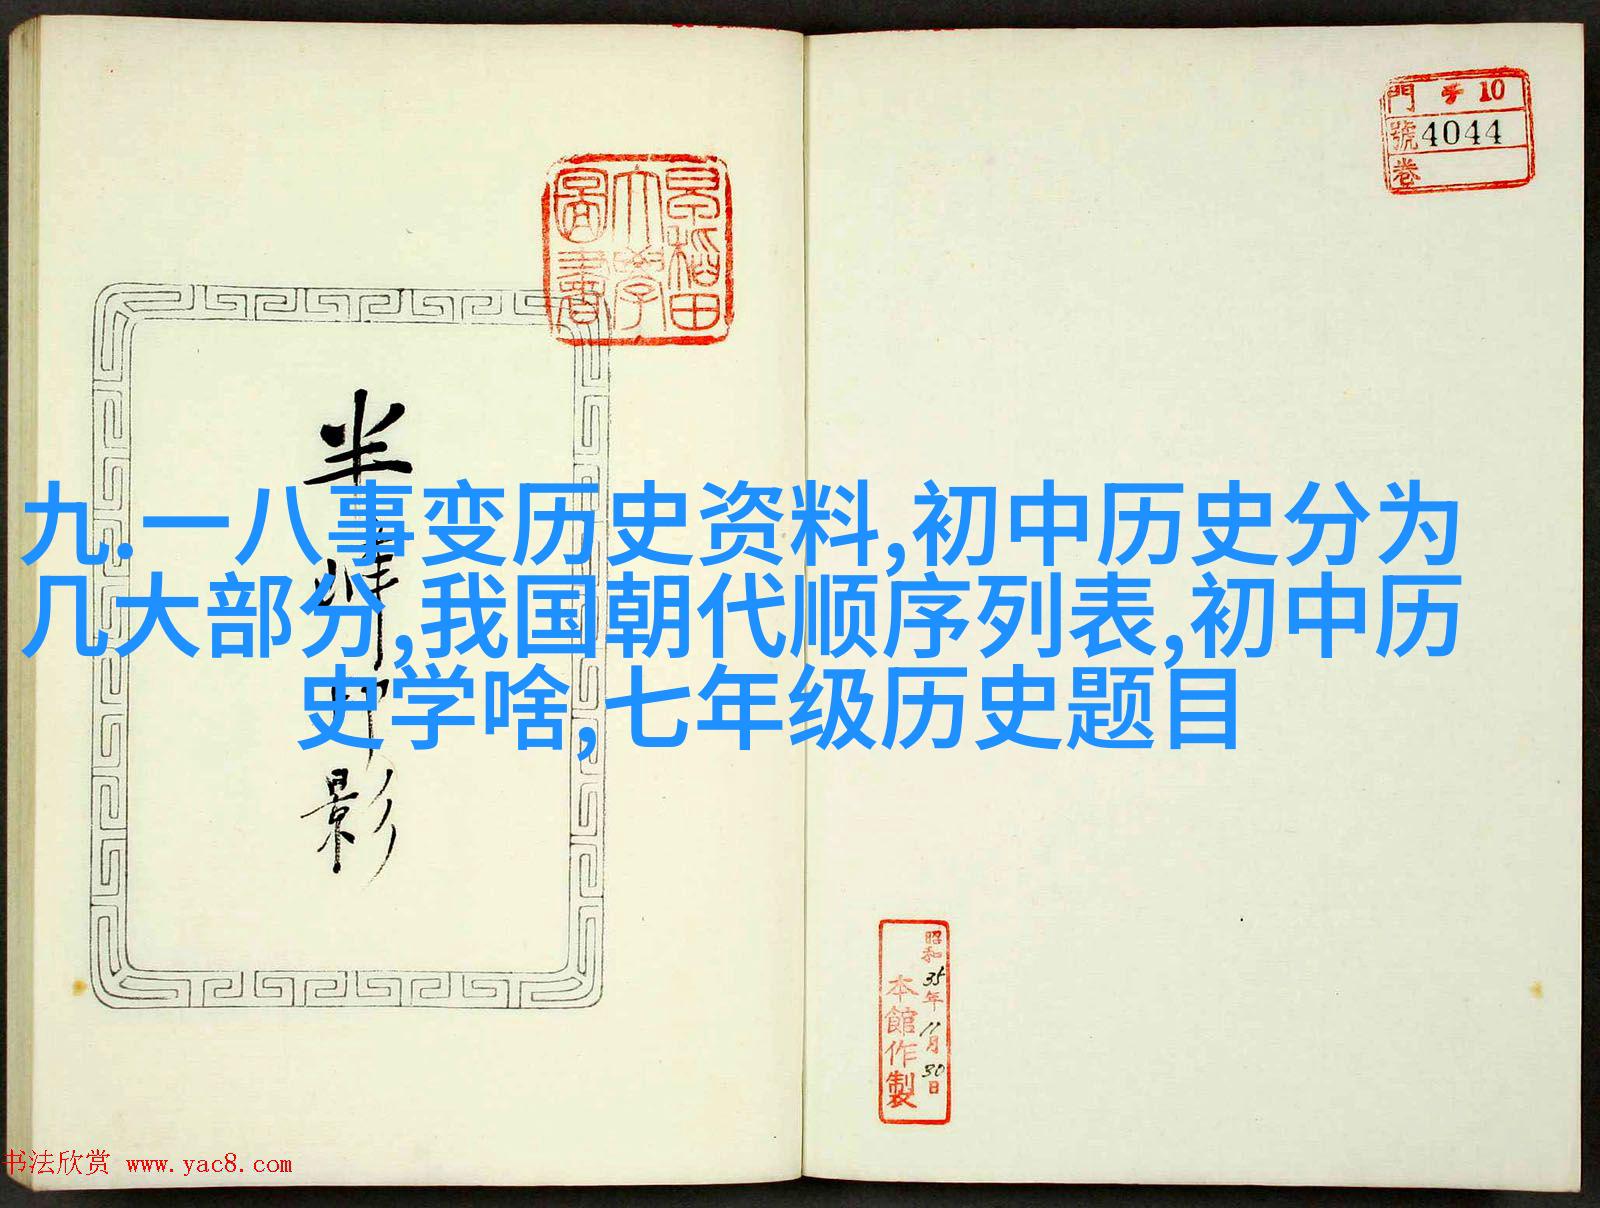 九.一八事变历史资料,初中历史分为
几大部分,我国朝代顺序列表,初中历
史学啥,七年级历史题目
門 チ 10
號 4044
卷
早稲田
大學
圖書
昭和35年11月30日
本館作製
书法欣赏 www.yac8.com